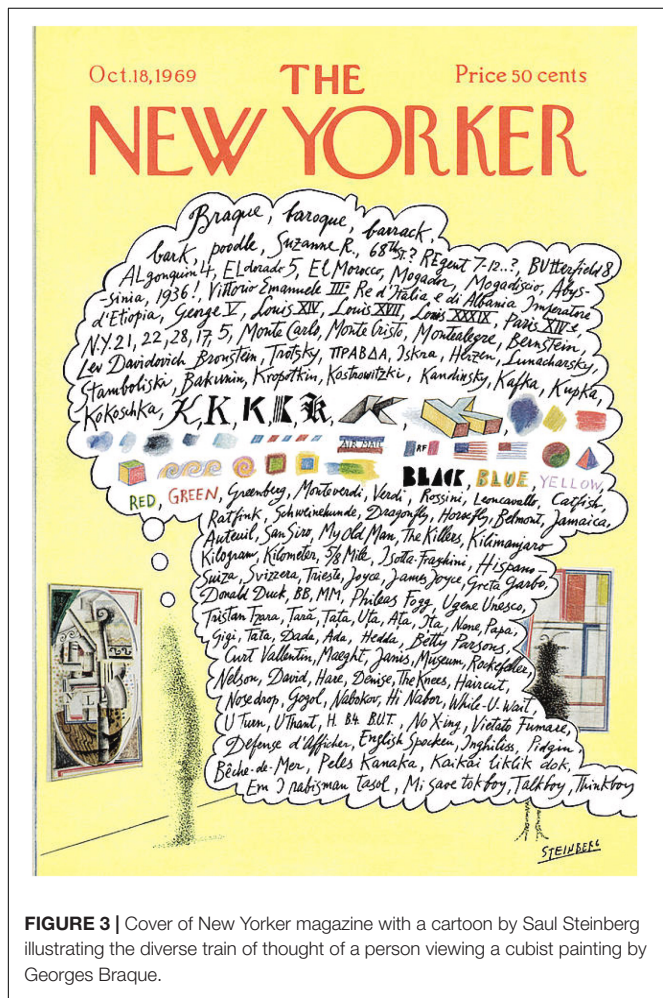 Oct.18,1969
THE
Price 50 cents
NEW YORKER
Braque, baroque, barrack,
bark, poodle, Suzanne R., 68th St.? REgent 7-12..?, BUtterfield 8
ALgonquin 4, ELdorado 5, El Morocco, Mogador, Mogadiscio, Abys-
-sinia, 1936! Vittorio Emanuele III: Re d'Italia e di Albania Imperatore
d'Etiopia, George V, Louis XIV, Louis XVII, Louis XXXIX, Paris XIVe
N.Y. 21, 22, 28, 17, 5, Monte Carlo, Monte Cristo, Montealegre, Bernstein,
Lev Davidovich Bronstein, Trotsky, ПРАВДА, Iskra, Herzen, Lunacharsky,
Stamboliski, Bakunin, Kropotkin, Kostrowitzki, Kandinsky, Kafka, Kupka,
Kokoschka, K, K, K, K, K, K, K,
AIR MAIL RF
BLACK, BLUE, YELLOW,
RED, GREEN, Greenberg, Monteverdi, Verdi, Rossini, Leoncavallo, Catfish,
Ratfink, Schweinehunde, Dragonfly, Horsefly, Belmont, Jamaica,
Auteuil, San Siro, My Old Man, The Killers, Kilimanjaro
Kilogram, Kilometer, 5/8 Mile, Isotta-Fraschini, Hispano-
Suiza, Svizzera, Trieste, Joyce, James Joyce, Greta Garbo,
Donald Duck, BB, MM, Phileas Fogg, Ugene Unesco,
Tristan Tzara, Tară, Tata, Uta, Ata, Ita, None, Papa,
Gigi, Tata, Dada, Ada, Hedda, Betty Parsons,
Curt Vallentin, Maeght, Janis, Museum, Rockefeller,
Nelson, David, Hare, Denise, The Knees, Haircut,
Nosedrop, Gogol, Nabokov, Hi Nabor, While-U-Wait,
U Turn, U Thant, H. B4. BUT., No X-ing, Vietato Fumare,
Défense d'Afficher, English Spocken, Inghiliss, Pidgin
Bêche-de-Mer, Peles Kanaka, Kaikai liklik dok,
Em I rabisman tasol, Mi save tokboy, Talkboy, Thinkboy
STEINBERG
FIGURE 3 | Cover of New Yorker magazine with a cartoon by Saul Steinberg
illustrating the diverse train of thought of a person viewing a cubist painting by
Georges Braque.